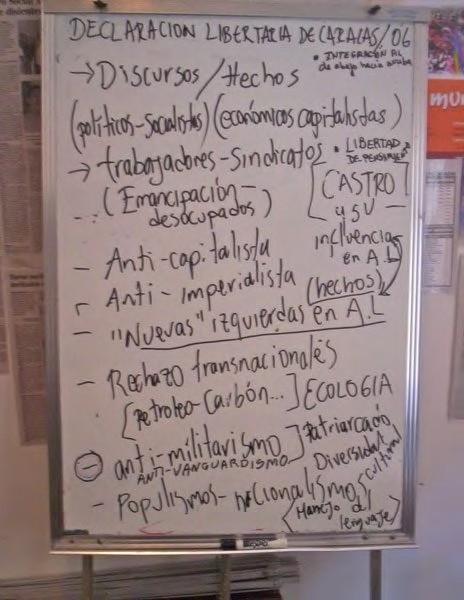 DECLARACION LIBERTARIA DE CARACAS/06
• INTEGRACIÓN AL
de abajo hacia arriba
→ Discursos/Hechos
(políticos-socialistas) (económicos capitalistas)
→ trabajadores-Sindicatos
• LIBERTAD
DE PENSAMIENTO
(Emancipación-
desocupados)
CASTRO
y su
influencias
en A.L
- Anti-capitalista
- Anti-imperialista
(hechos)
- "Nuevas" izquierdas en A.L
- Rechazo transnacionales
[Petroleo-Carbón...] ECOLOGIA
- anti-militarismo] Patriarcado
ANTI-VANGUARDISMO
Diversidad
cultural
- Populismos-nacionalismos
(Manejo del
lenguaje)
mun